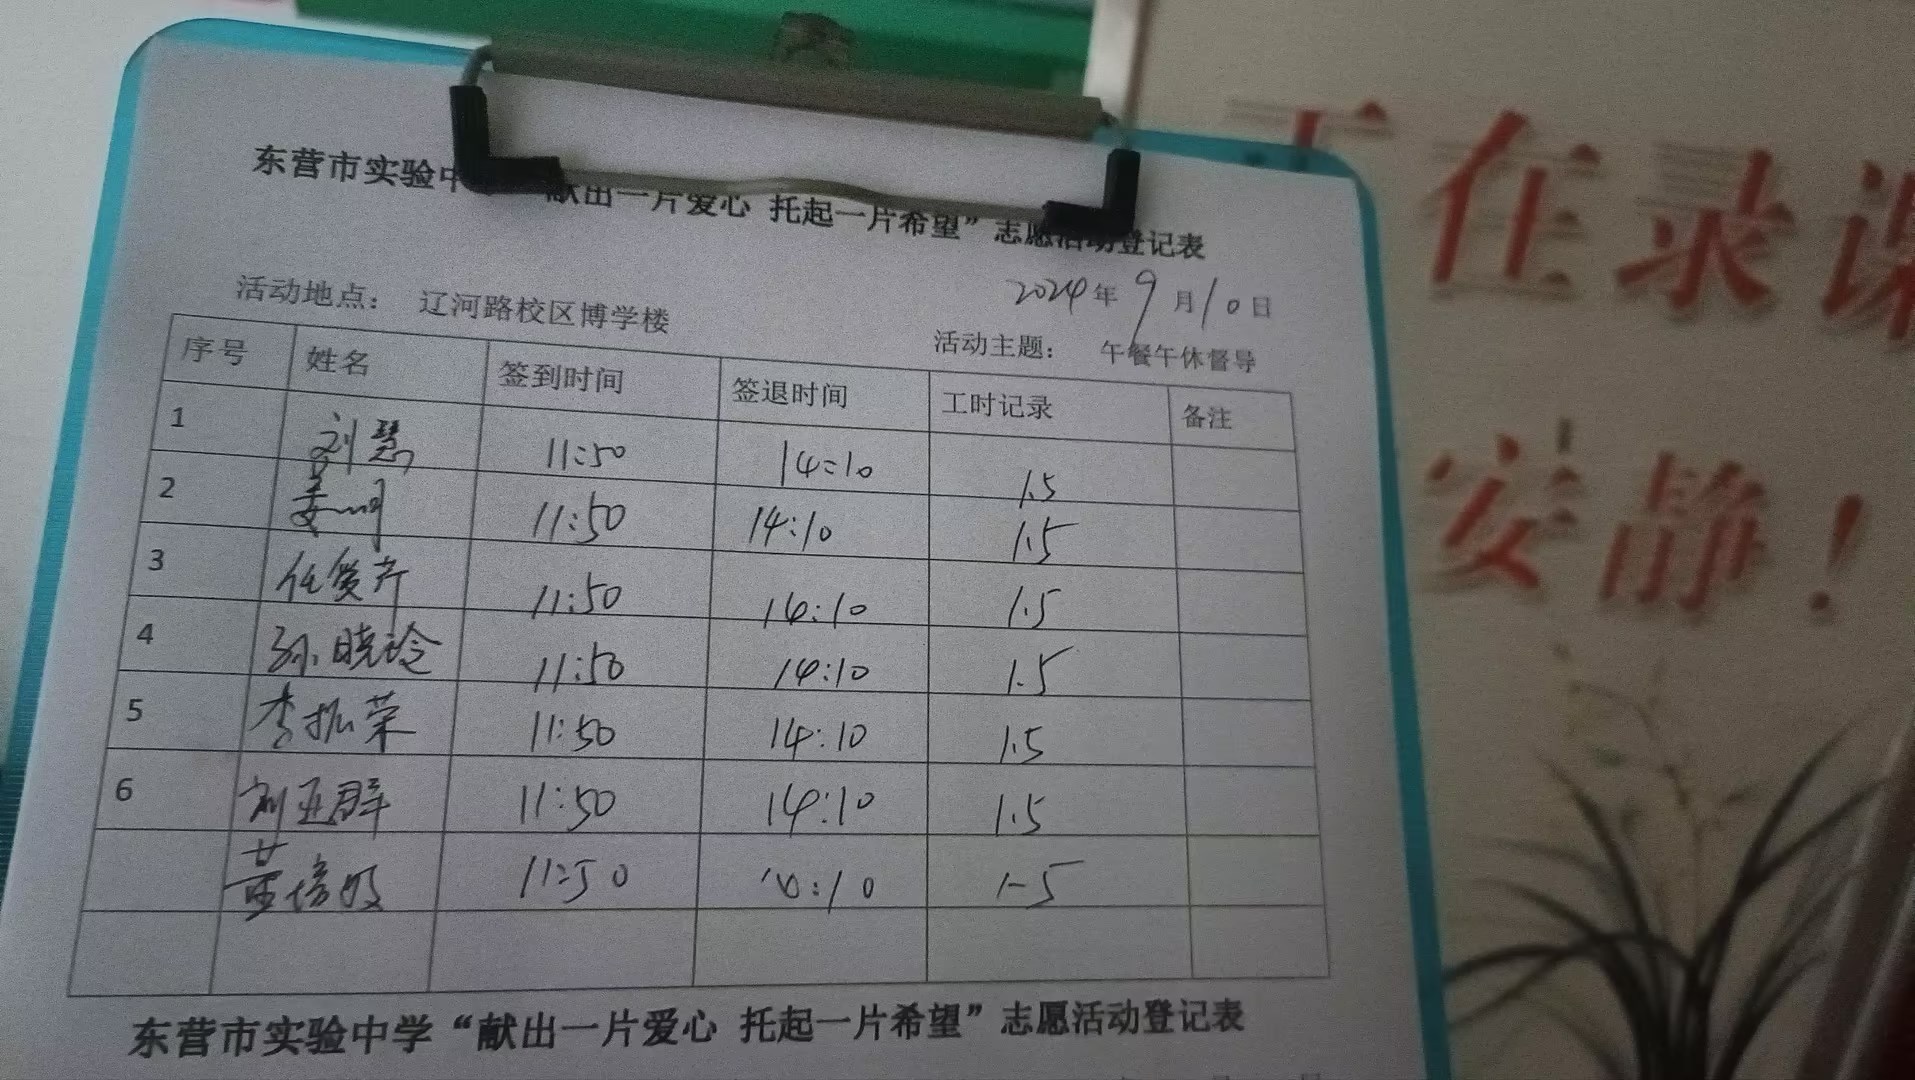 东营市实验中 “献出一片爱心 托起一片希望”志愿活动登记表
2024年9月10日
活动地点： 辽河路校区博学楼
活动主题： 午餐午休督导
序号 姓名 签到时间 签退时间 工时记录 备注
1 刘慧 11:50 14:10 1.5
2 姜 11:50 14:10 1.5
3 任爱芹 11:50 14:10 1.5
4 孙晓玲 11:50 14:10 1.5
5 李振荣 11:50 14:10 1.5
6 刘亚群 11:50 14:10 1.5
黄 11:50 14:10 1.5
东营市实验中学“献出一片爱心 托起一片希望”志愿活动登记表
正在录课
安静！